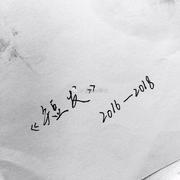 《短发》 2016—2018